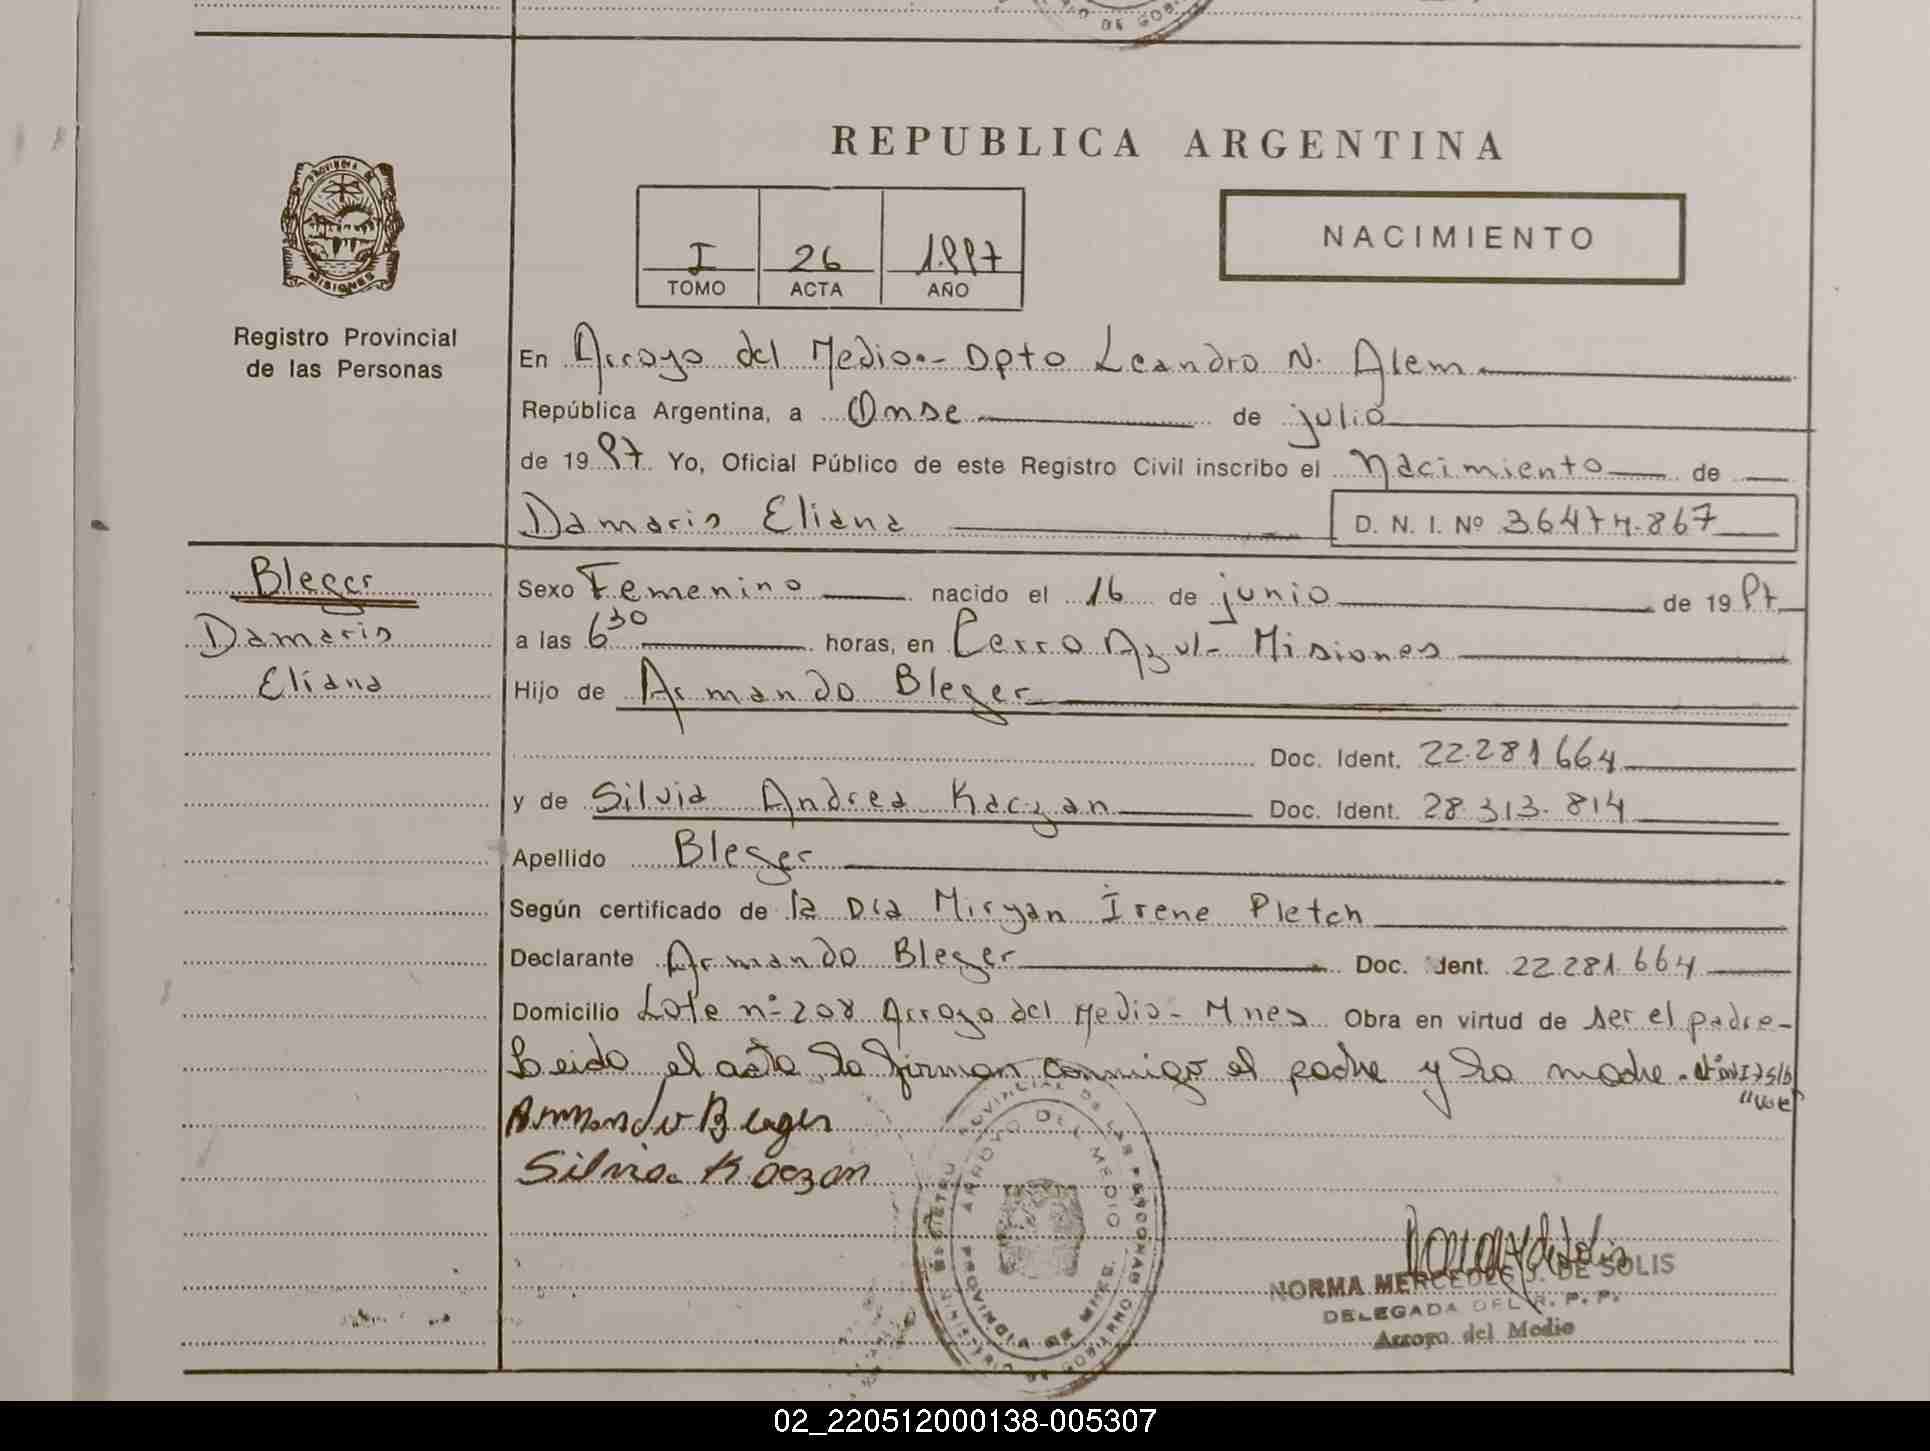 REPUBLICA ARGENTINA
NACIMIENTO
I 26 1.997
TOMO ACTA AÑO
PROVINCIA DE
MISIONES
Registro Provincial
de las Personas
En Arroyo del Medio.- Dpto Leandro N. Alem
República Argentina, a Onse de julio
de 19 97 Yo, Oficial Público de este Registro Civil inscribo el nacimiento de
Damaris Eliana D. N. I. Nº 36474.867
Bleger
Damaris
Eliana
Sexo Femenino nacido el 16 de junio de 19 97
a las 6 30 horas, en Cerro Azul- Misiones
Hijo de Armando Bleger
Doc. Ident. 22.281 664
y de Silvia Andrea Kaczan Doc. Ident. 28.313.814
Apellido Bleger
Según certificado de la Dra Miryan Irene Pletch
Declarante Armando Bleger Doc. Ident. 22.281.664
Domicilio Lote nº 208 Arroyo del Medio- Mnes Obra en virtud de ser el padre-
Leido el acta la firman conmigo el padre y la madre.
Armando Bleger
Silvia Kaczan
ARROYO DEL MEDIO
PROVINCIA DE MNES.
NORMA MERCEDES J. DE SOLIS
DELEGADA DEL R. P. P.
Arroyo del Medio
02_220512000138-005307